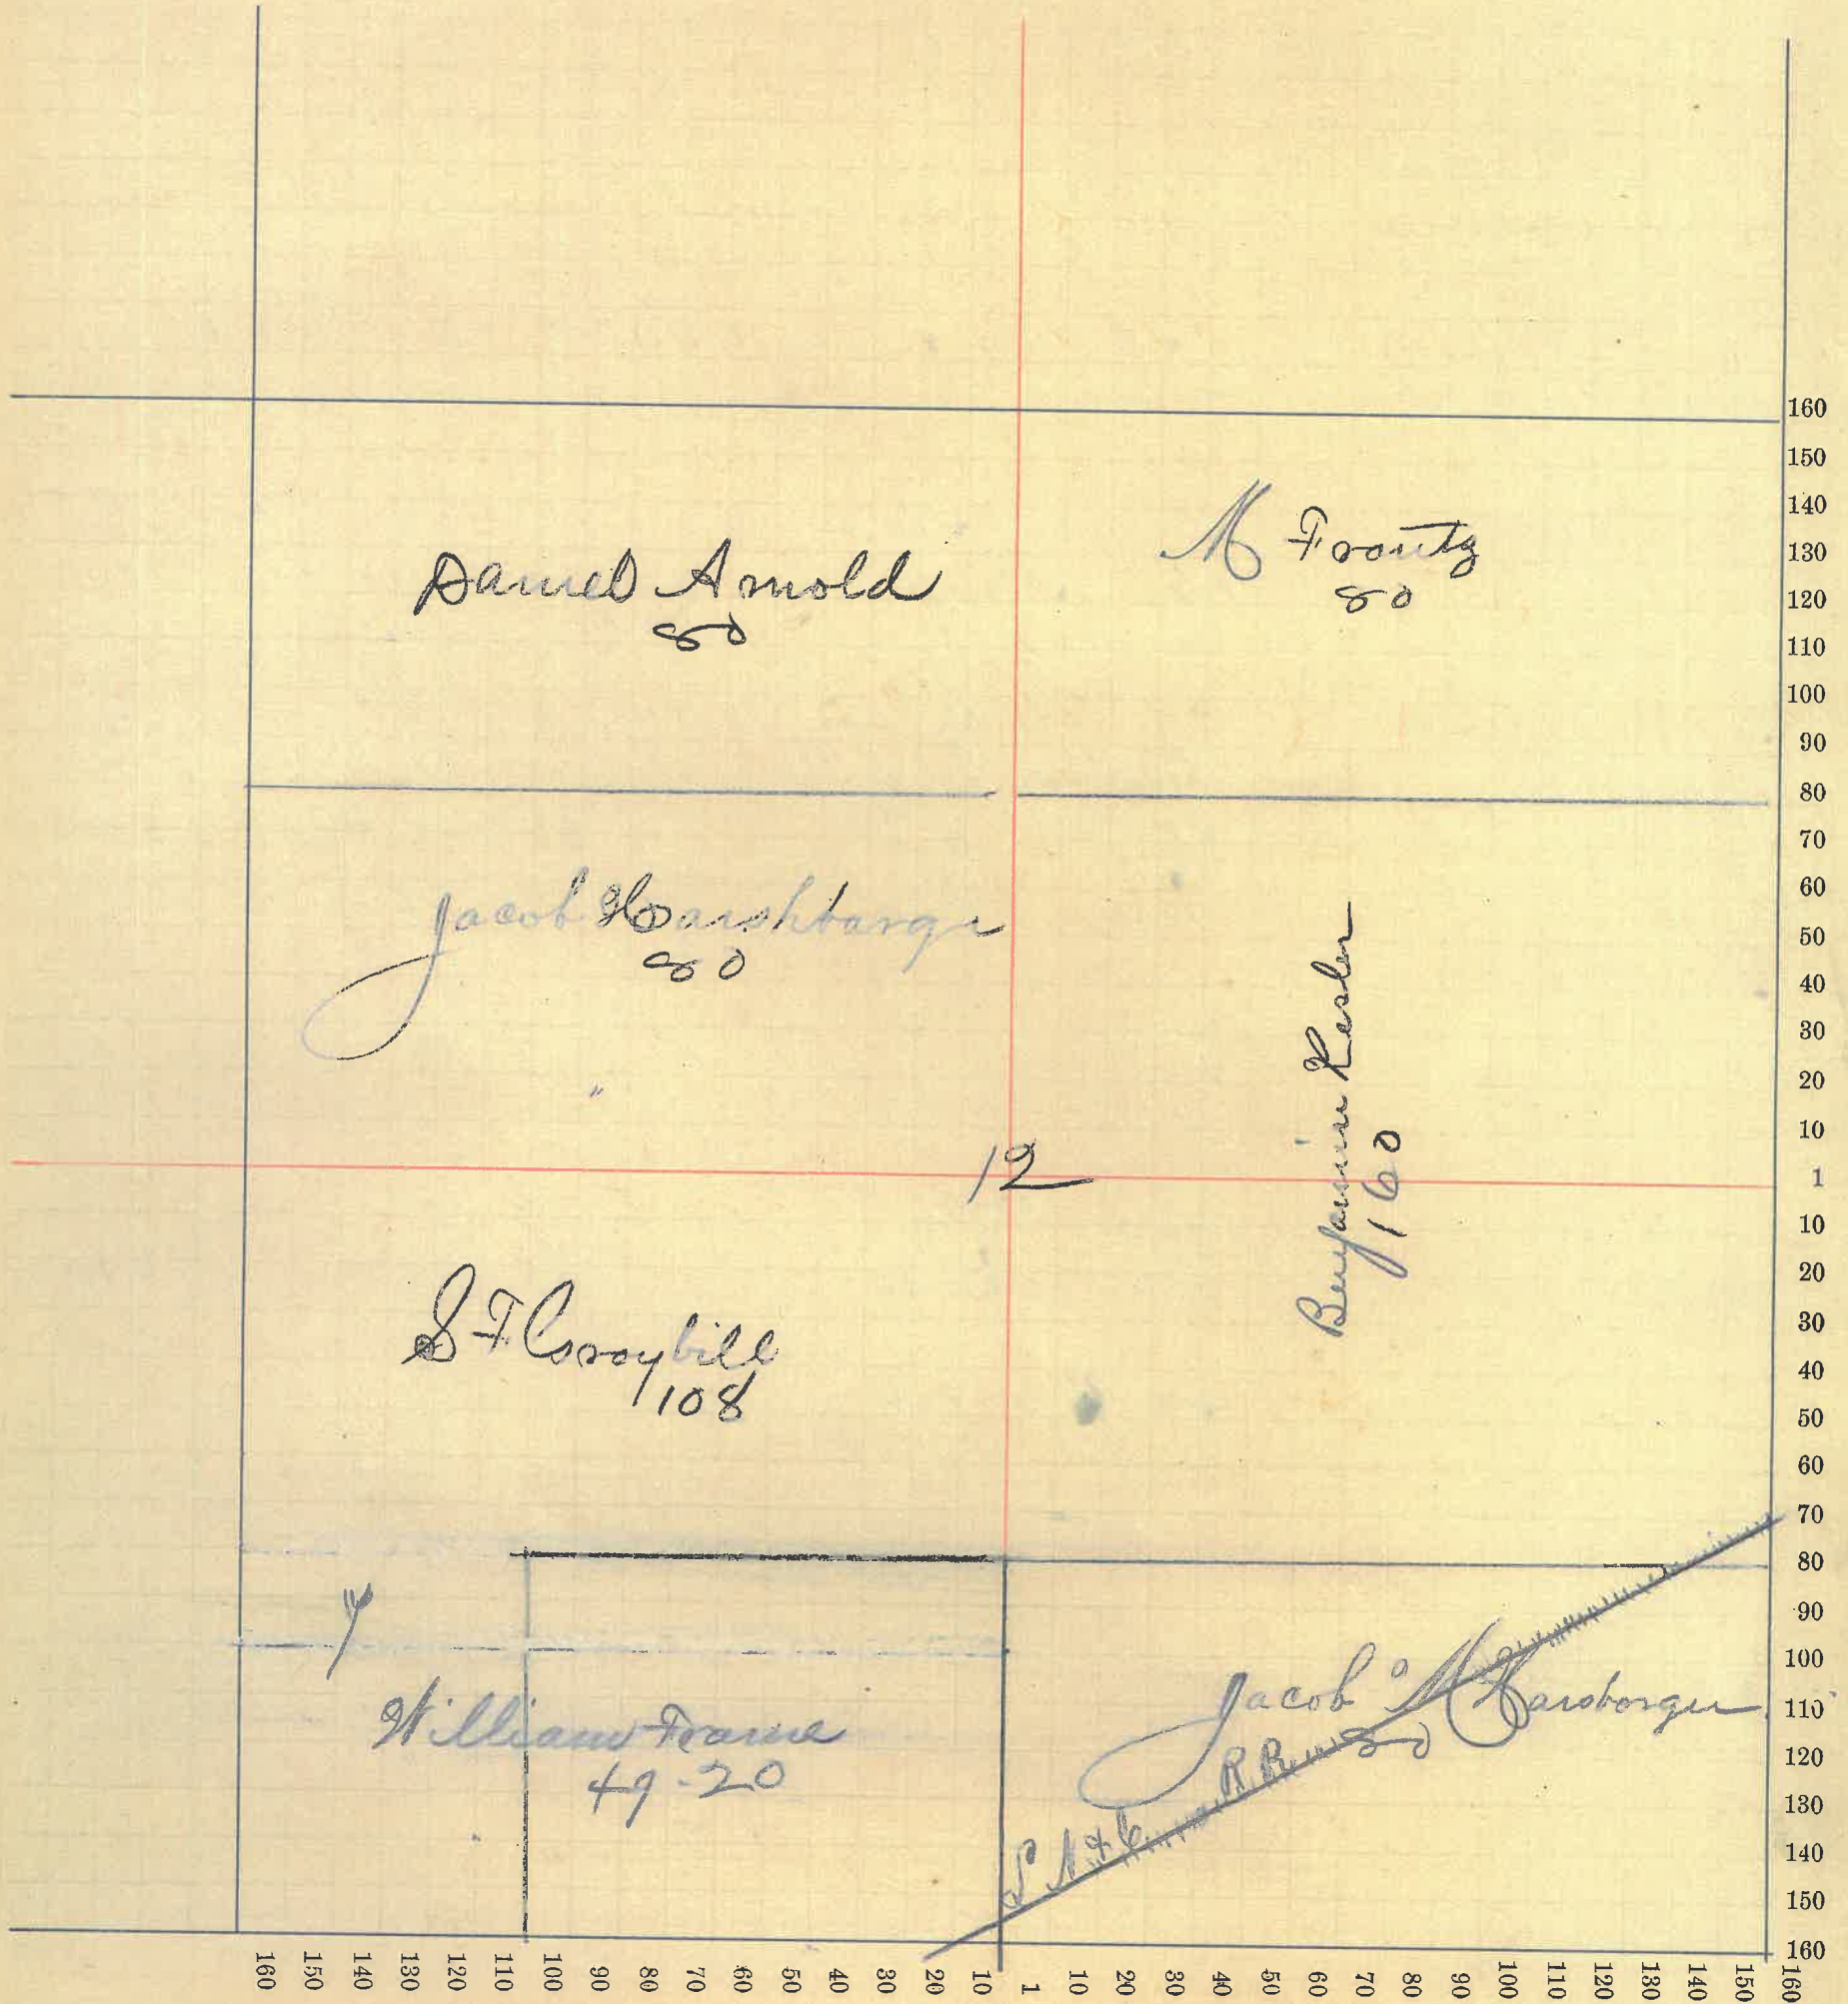 Daniel Arnold
80
M Frantz
80
Jacob Harshbarge
80
Benjamin Kesler
160
12
S F Graybill
108
William Frame
49-20
Jacob M Harsbarger
80
S N & C RR
160
150
140
130
120
110
100
90
80
70
60
50
40
30
20
10
1
10
20
30
40
50
60
70
80
90
100
110
120
130
140
150
160
160 150 140 130 120 110 100 90 80 70 60 50 40 30 20 10 1 10 20 30 40 50 60 70 80 90 100 110 120 130 140 150 160